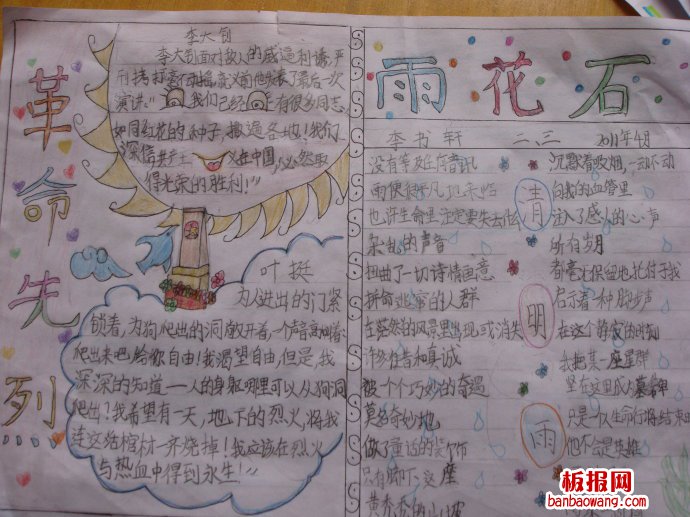 革命先烈
李大钊
李大钊面对敌人的威逼利诱,严
刑拷打毫不动摇,就义前他发表了最后一次
演讲:"我们已经有很多同志
如同红花的种子,撒遍各地!我们
深信共产主义在中国,必然取
得光荣的胜利!"
叶挺
为人进出的门紧
锁着,为狗爬出的洞敞开着,一个声音高叫着
爬出来吧,给你自由!我渴望自由,但是,我
深深的知道——人的身躯哪里可以从狗洞
爬出?我希望有一天,地下的烈火,将我
连这活棺材一齐烧掉!我应该在烈火
与热血中得到永生!"
雨花石
李书轩 二.三 2011年4月
没有等及任何音讯
雨便很平凡地来临
也许生命里注定要失去什么
杂乱的声音
扭曲了一切诗情画意
拼命逃窜的人群
在苍然的风景里出现或消失
许多祷告和真诚
被一个个巧妙的奇遇
莫名奇妙地
做了童话的装饰
只有脚下这座
黄香香的小坡
清
明
雨
沉默着吸烟,一动不动
向我的血管里
注入了感人的心声
所有岁月
都毫无保留地托付于我
启示着一种脚步声
在这个静寂的时刻
我把某一座星群
竖在这里成为墓碑
只是一队生命行将结束
他不会是英雄
板报网
banbaowang.com